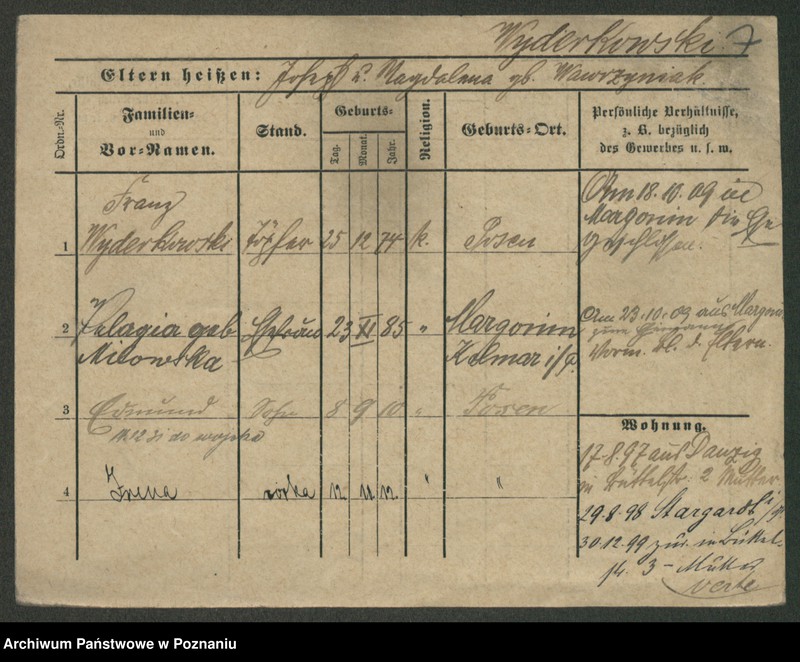 Wyderkowski. 7
Eltern heißen: Joseph u. Magdalena gb. Wawrzyniak.
Ordn.-Nr. Familien- und Vor-Namen. Stand. Geburts- Tag. Monat. Jahr. Religion. Geburts-Ort. Persönliche Verhältnisse, z. B. bezüglich des Gewerbes u. s. w.
1 Franz
Wyderkowski Töpfer 25 12 74 k. Posen
Am 18.10.09 in
Margonin die Ehe
geschlossen.
2 Pelagia geb. Ehefrau 23 XI 85 " Margonin
Milowska Kolmar i/P.
Am 23.10.09 aus Margonin
Vorm. bl. d. Eltern.
3 Edmund Sohn 8 9 10 " Posen
do wojska
4 Irena córka 12 11 12 " "
Wohnung.
17.8.97 aus Danzig
in Büttelstr. 2 Mutter
29.8.98 Stargardt i/P.
30.12.99 zur. in Büttel-
str. 3 - Mutter
verte
Archiwum Państwowe w Poznaniu